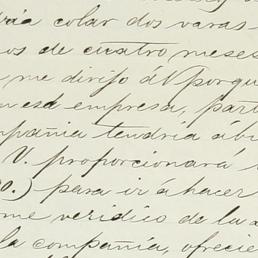 ria colar dos varas
os de cuatro meses
me dirijo á V porqu
esa empresa, part
mpañia tendria á bi
V. proporcionará
o.) para ir á hacer
me veridico de la
la compañia, ofrecie